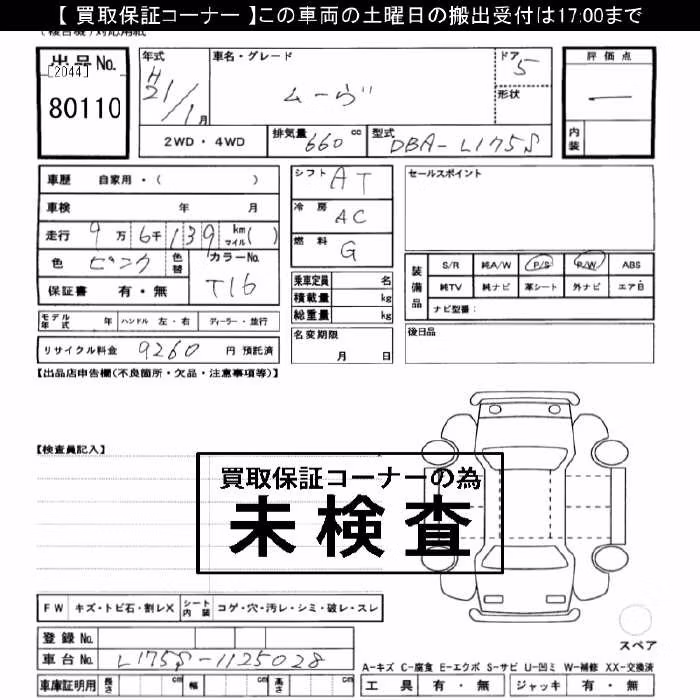 【 買取保証コーナー 】この車両の土曜日の搬出受付は17:00まで
出品No.
[2044]
80110
年式
H
21/1月
車名・グレード
ムーヴ
ドア
5
形状
評価点
—
内装
2WD・4WD
排気量 660 cc
型式 DBA-L175S
車歴 自家用・( )
車検 年 月
走行 9万6千139 km マイル( )
色 ピンク
色替
カラーNo.
T16
保証書 有・無
シフト AT
冷房 AC
燃料 G
乗車定員 名
積載量 kg
総重量 kg
セールスポイント
装備品
S/R 純A/W P/S P/W ABS
純TV 純ナビ 革シート 外ナビ エアB
ナビ型番:
モデル年式 年 ハンドル 左・右 ディーラー・並行
リサイクル料金 9260 円 預託済
名変期限
月 日
後日品
【出品店申告欄(不良箇所・欠品・注意事項等)】
【検査員記入】
買取保証コーナーの為
未検査
FW キズ・トビ石・割レX シート内装 コゲ・穴・汚レ・シミ・破レ・スレ
登録No.
車台No. L175S-1125028
車庫証明用 長さ cm 幅 cm 高さ cm
スペア
A-キズ C-腐食 E-エクボ S-サビ U-凹ミ W-補修 XX-交換済
工具 有・無 ジャッキ 有・無